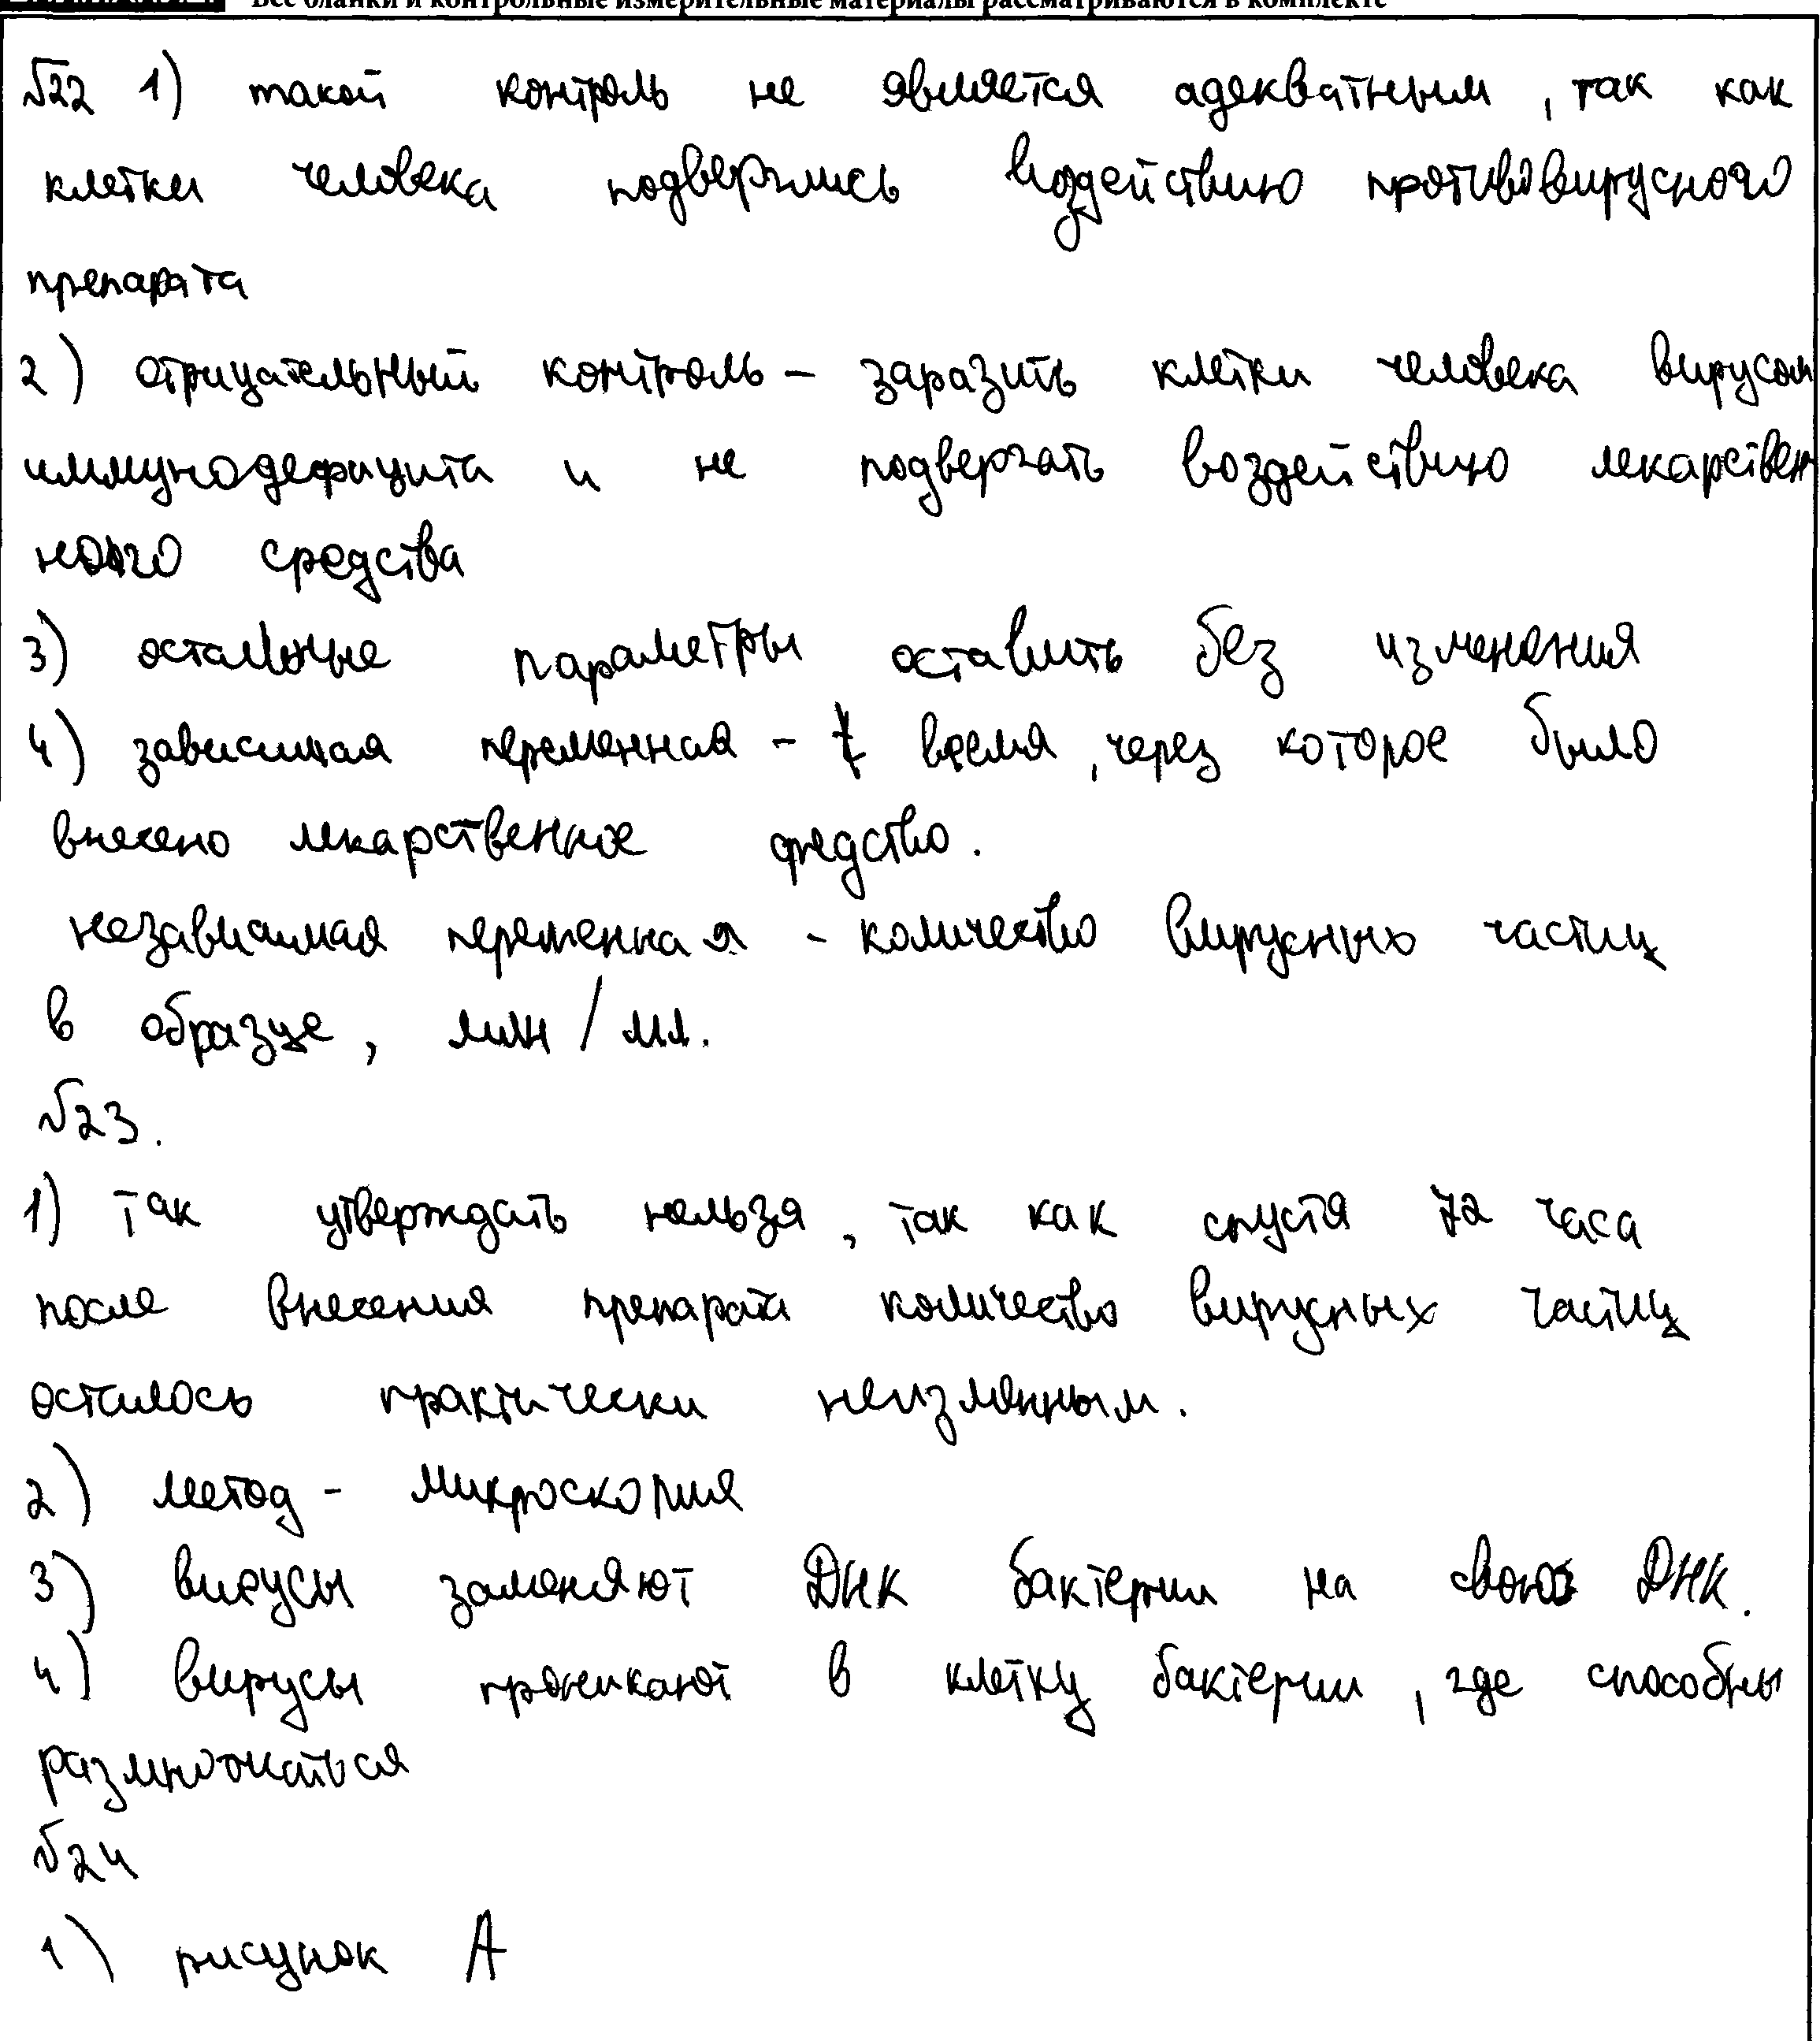 Все бланки и контрольные измерительные материалы рассматриваются в комплекте
№22 1) такой контроль не является адекватным, так как
клетки человека подверглись воздействию противовирусного
препарата
2) отрицательный контроль – заразить клетки человека вирусом
иммунодефицита и не подвергать воздействию лекарствен
ного средства
3) остальные параметры оставить без изменения
4) зависимая переменная – время, через которое было
внесено лекарственное средство.
независимая переменная - количество вирусных частиц
в образце, млн/мл.
№23.
1) Так утверждать нельзя, так как спустя 72 часа
после внесения препарата количество вирусных частиц
осталось практически неизменным.
2) метод - микроскопия
3) вирусы заменяют ДНК бактерии на свою ДНК.
4) вирусы проникают в клетку бактерии, где способны
размножаться
№24
1) рисунок А